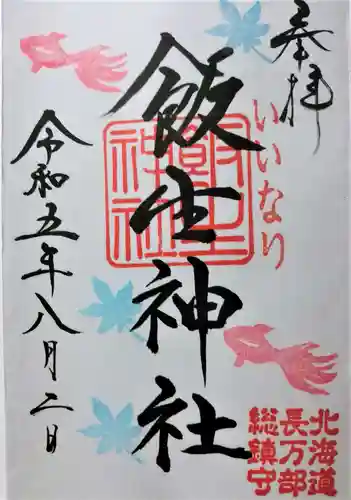 奉拝
いいなり
飯生神社
飯生
神社
北海道
長万部
総鎮守
令和五年八月二日